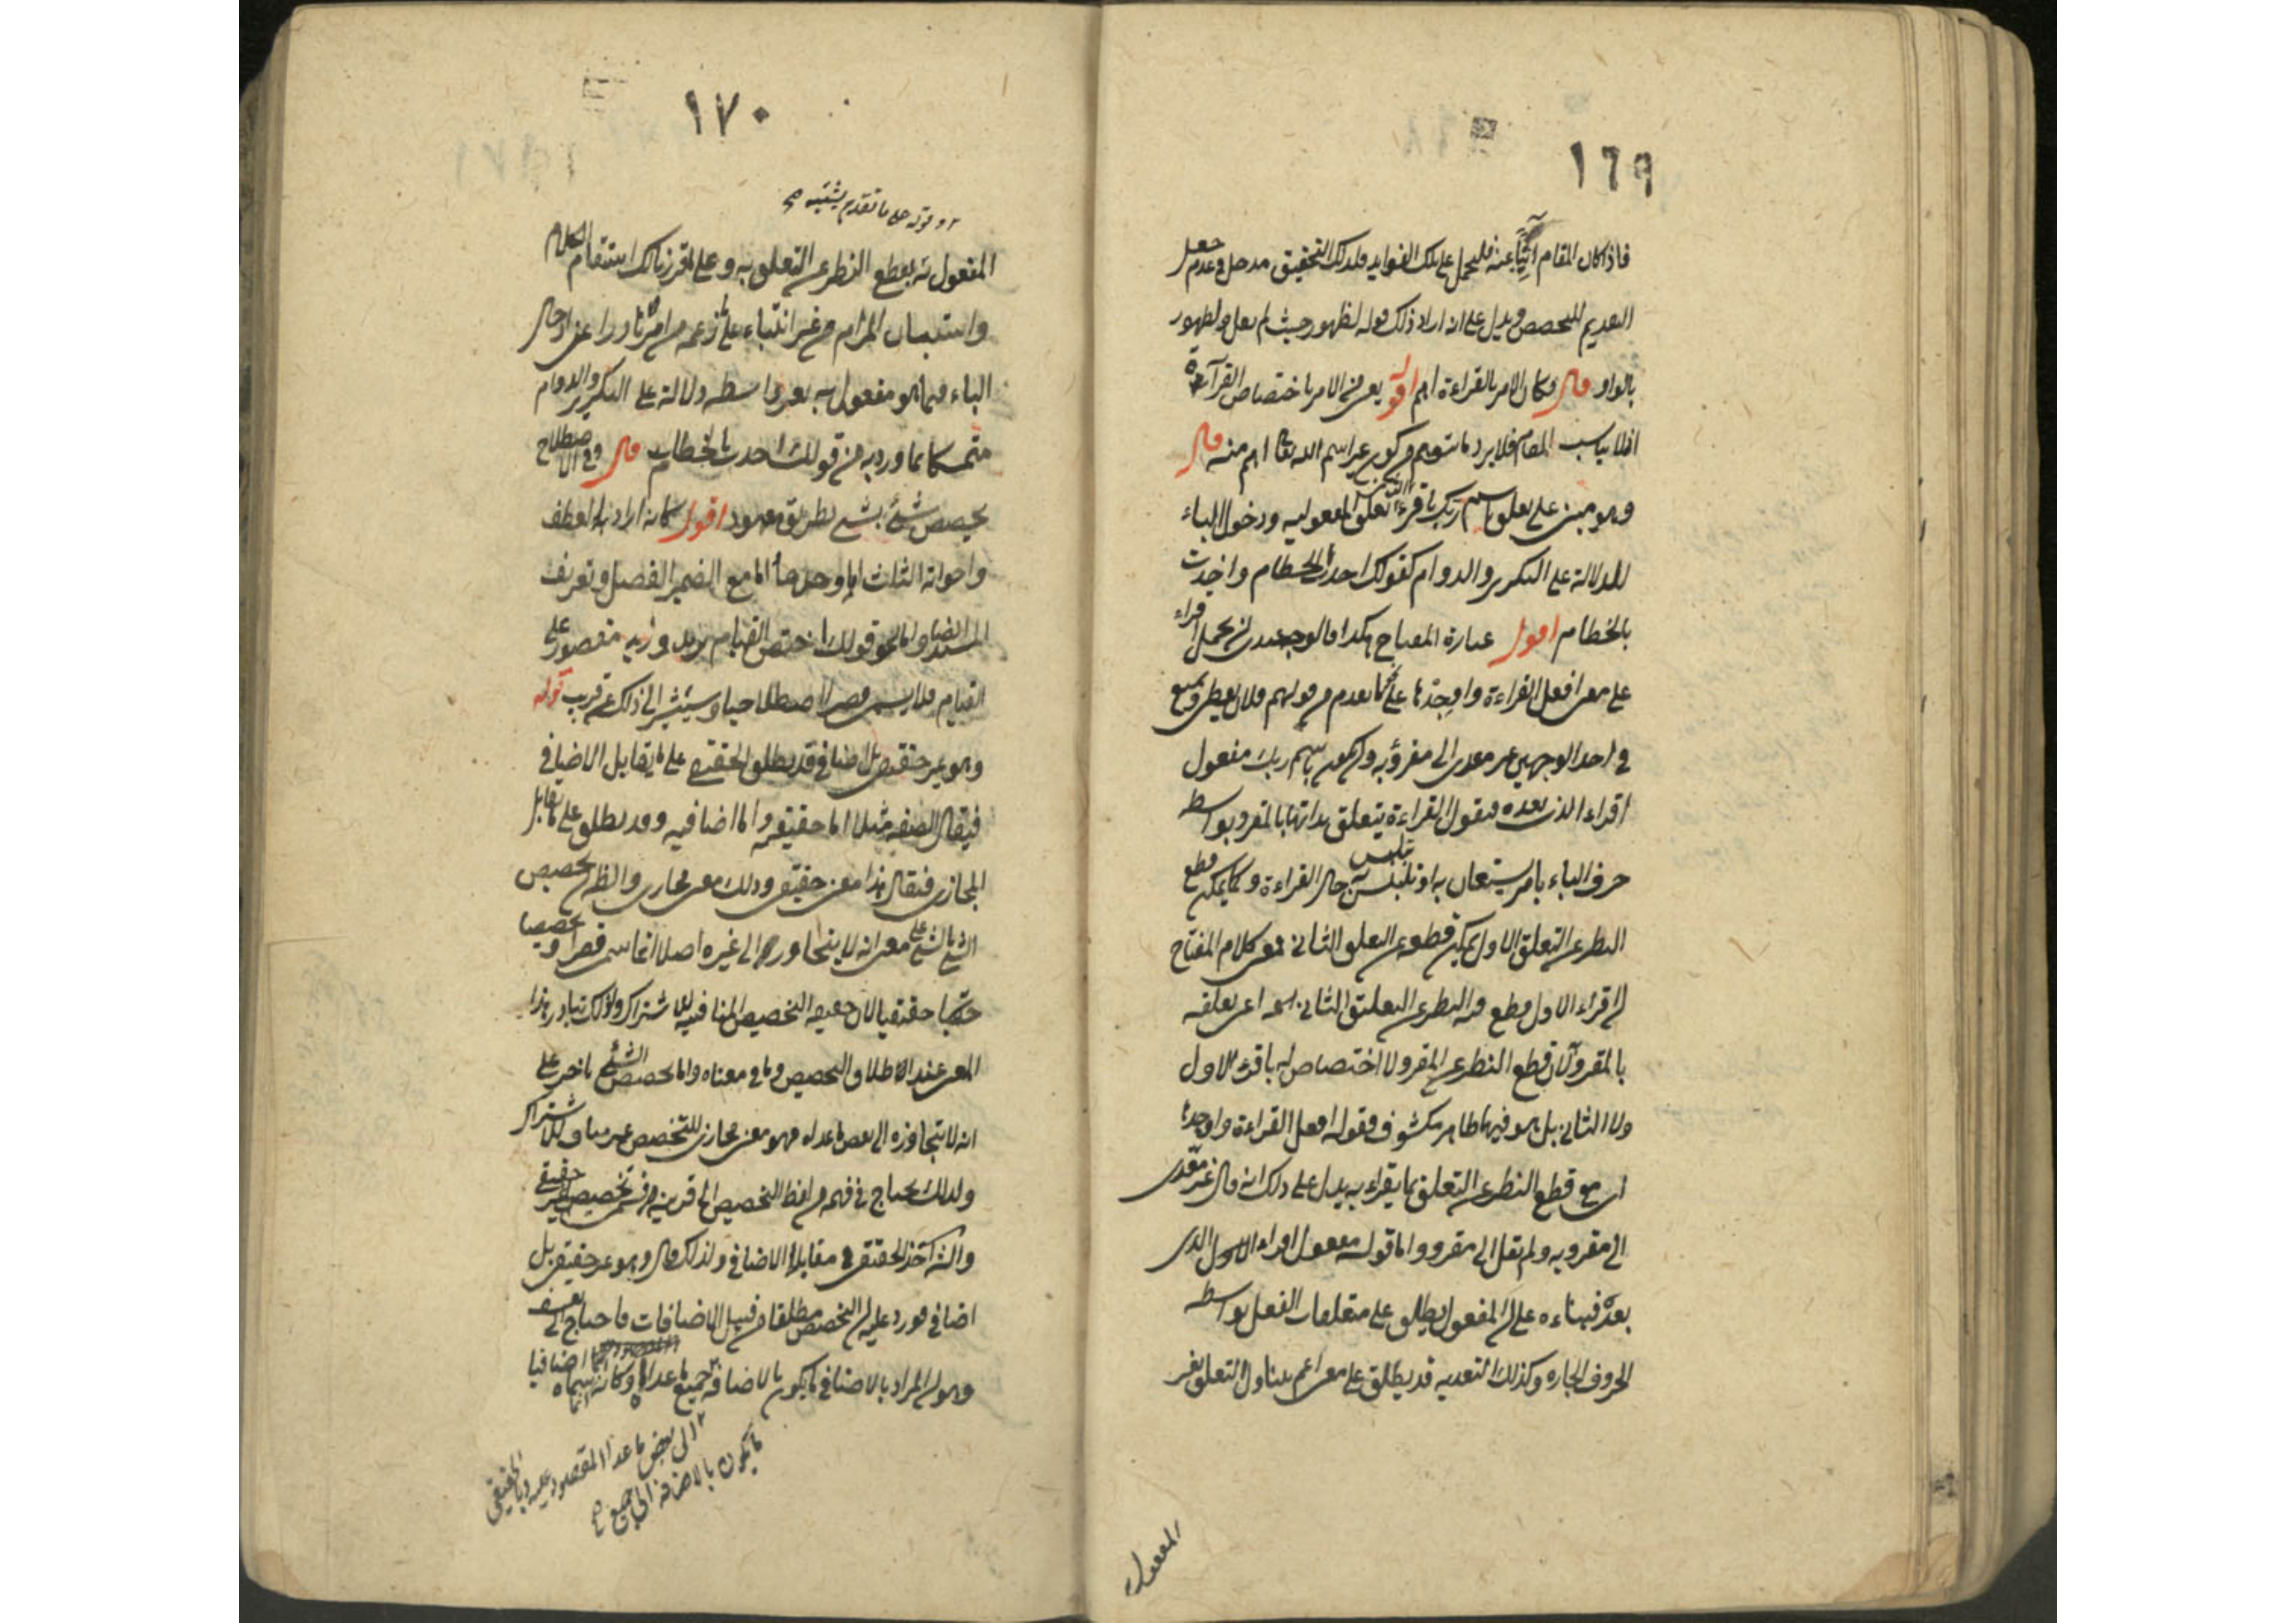 ١٦٩
فاذا كان المقام آبيا عنه فليحمل على تلك الفوايد ولذلك التحقيق مدخل فى عدم جعل
التقديم للتخصيص ويدل على انه اراد ذلك قوله لظهور حيث لم يعل ولظهور
بالواو قال وكان الامر بالقراءة اهم اقول يعنى الامر باختصاص القرآءة
اذ لا يناسب المقام فلا يرد ما يتوهم من كون غير اسم الله تعا اهم منه قال
وهو مبنى على تعلق باسم ربك باقرء الثانى تعلق المفعولية ودخول الباء
للدلالة على التكرير والدوام كقولك اخذت الخطام واخذت
بالخطام اقول عبارة المفتاح هكذا فالوجه عندى ان يحمل اقراء
على معنى افعل القراءة واوجدها على ما تقدم من قولهم فلان يعطى ويمنع
فى احد الوجهين غير معدى الى مقروٴ به وان يكون باسم ربك مفعول
اقراء الذى بعده فنقول القراءة يتعلق بذاتها بالمقرو وبواسطة
حرف الباء بامر يستعان به او تلبس به حال القراءة وكما يمكن قطع
النظر عن التعلق الاول يمكن قطعه عن التعلق الثانى فمعنى كلام المفتاح
ان اقراء الاول قطع فيه النظر عن التعليق الثانى اعنى تعلقه
بالمقرو لان قطع النظر عن المقرو لا اختصاص له باقرء الاول
ولا الثانى بل هو فيهما ظاهر مكشوف فقوله افعل القراءة واوجدها
اى مع قطع النظر عن التعلق بما يقراء به يدل على ذلك انه قال غير معدى
الى مقرو به ولم يقل الى مقرو واما قوله مفعول اقراء الذى
بعده فبناءه على ان المفعول يطلق على متعلقات الفعل بواسطة
الحروف الجاره وكذلك التعديه قد يطلق على معنى اعم يتناول التعلق بغير
المفعول
١٧٠
المفعول به بقطع النظر عن التعلق به وعلى ما قررنا لك استقام الكلام
واستبان المرام من غير ابتناء على ما زعمه من امر نادر اعنى ادخال
الباء فيما هو مفعول به بغير واسطه دلالة على التكرير والدوام
متمسكا بما ورد به من قولك اخذت بالخطام قال وفى الاصطلاح
تخصيص شئ بشئ بطريق معهود اقول كانه اراد به العطف
واخواته الثلاث او وحدها اما مع الضمير الفصل وتعريف
المسند او ايضا واما نحو قولك اختص القيام بزيد وزيد مقصور على
القيام فلا يسمى قصرا اصطلاحيا وسيشير الى ذلك عن قريب قوله
وهو غير حقيقى بل اضافى قد يطلق الحقيقى على ما يقابل الاضافى
فيقال الصفه مثلا اما حقيقيه واما اضافيه وقد يطلق على ما يقابل
المجازى فيقال هذا معنى حقيقى وذلك معنى مجازى والظ ان تخصيص
الشئ بالشئ على معنى انه لا يتجاوزه الى غيره اصلا انما سمى قصرا وتخصيصا
حقيقيا لان حقيقة التخصيص المنافية للاشتراك ولذلك تبادر هذا
المعنى عند الاطلاق التخصيص وما فى معناه واما تخصيص الشئ باخر على
انه لا يتجاوزه الى بعض ما عداه فهو معنى مجازى للتخصيص غير مناف للاشتراك
ولذلك يحتاج فى فهمه من لفظ التخصيص الى قرينه تخصيص غير حقيقى
والشه اخذ الحقيقى مقابلا للاضافى ولذلك قال وهو غير حقيقى بل
اضافى فورد عليه ان التخصيص مطلقا من قبيل الاضافات فاحتاج الى
وهو ان المراد بالاضافى ما يكون بالاضافة جميع ما عداه وكانه انما سماه اضافيا
الى بعض ما عدا المقصور عليه وبالحقيقى
ما يكون بالاضافة الى جميع